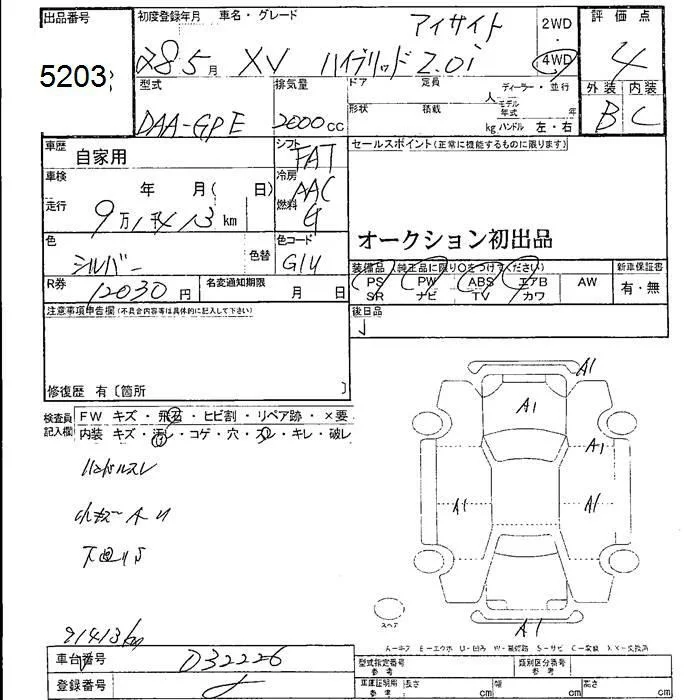 出品番号 初度登録年月 車名・グレード アイサイト 2WD・4WD 評価点
5203 28 5月 XV ハイブリッド 2.0i 4
型式 排気量 ドア 定員 人 ディーラー・並行 外装 内装
DAA-GPE 2000cc 形状 積載 kg モデル年式 年 ハンドル 左・右 B C
車歴 自家用 シフト FAT セールスポイント(正常に機能するものに限ります)
車検 年 月( 日) 冷房 AAC
走行 9万1千413km 燃料
色 シルバー 色替 色コード G1U オークション初出品
R券 12030円 名変通知期限 月 日
装備品(純正品に限り○をつけてください) 新車保証書
PS PW ABS エアB AW 有・無
SR ナビ TV カワ
注意事項申告欄(不具合内容等は具体的に記入して下さい) 後日品
修復歴 有〔箇所 〕
検査員記入欄 FW キズ・飛石・ヒビ割・リペア跡・×要
内装 キズ・汚レ・コゲ・穴・スレ・キレ・破レ
ハンドルスレ
小キズ
下廻りS
A1
A1
A1
A1
A1
A1
スペア
91413km
A-キズ E-エクボ U-凹み W-補修跡 S-サビ C-腐蝕 XX-交換済
車台番号 D32226
登録番号
型式指定番号 参考 類別区分番号 参考
車庫証明用 参考 長さ cm 幅 cm 高さ cm